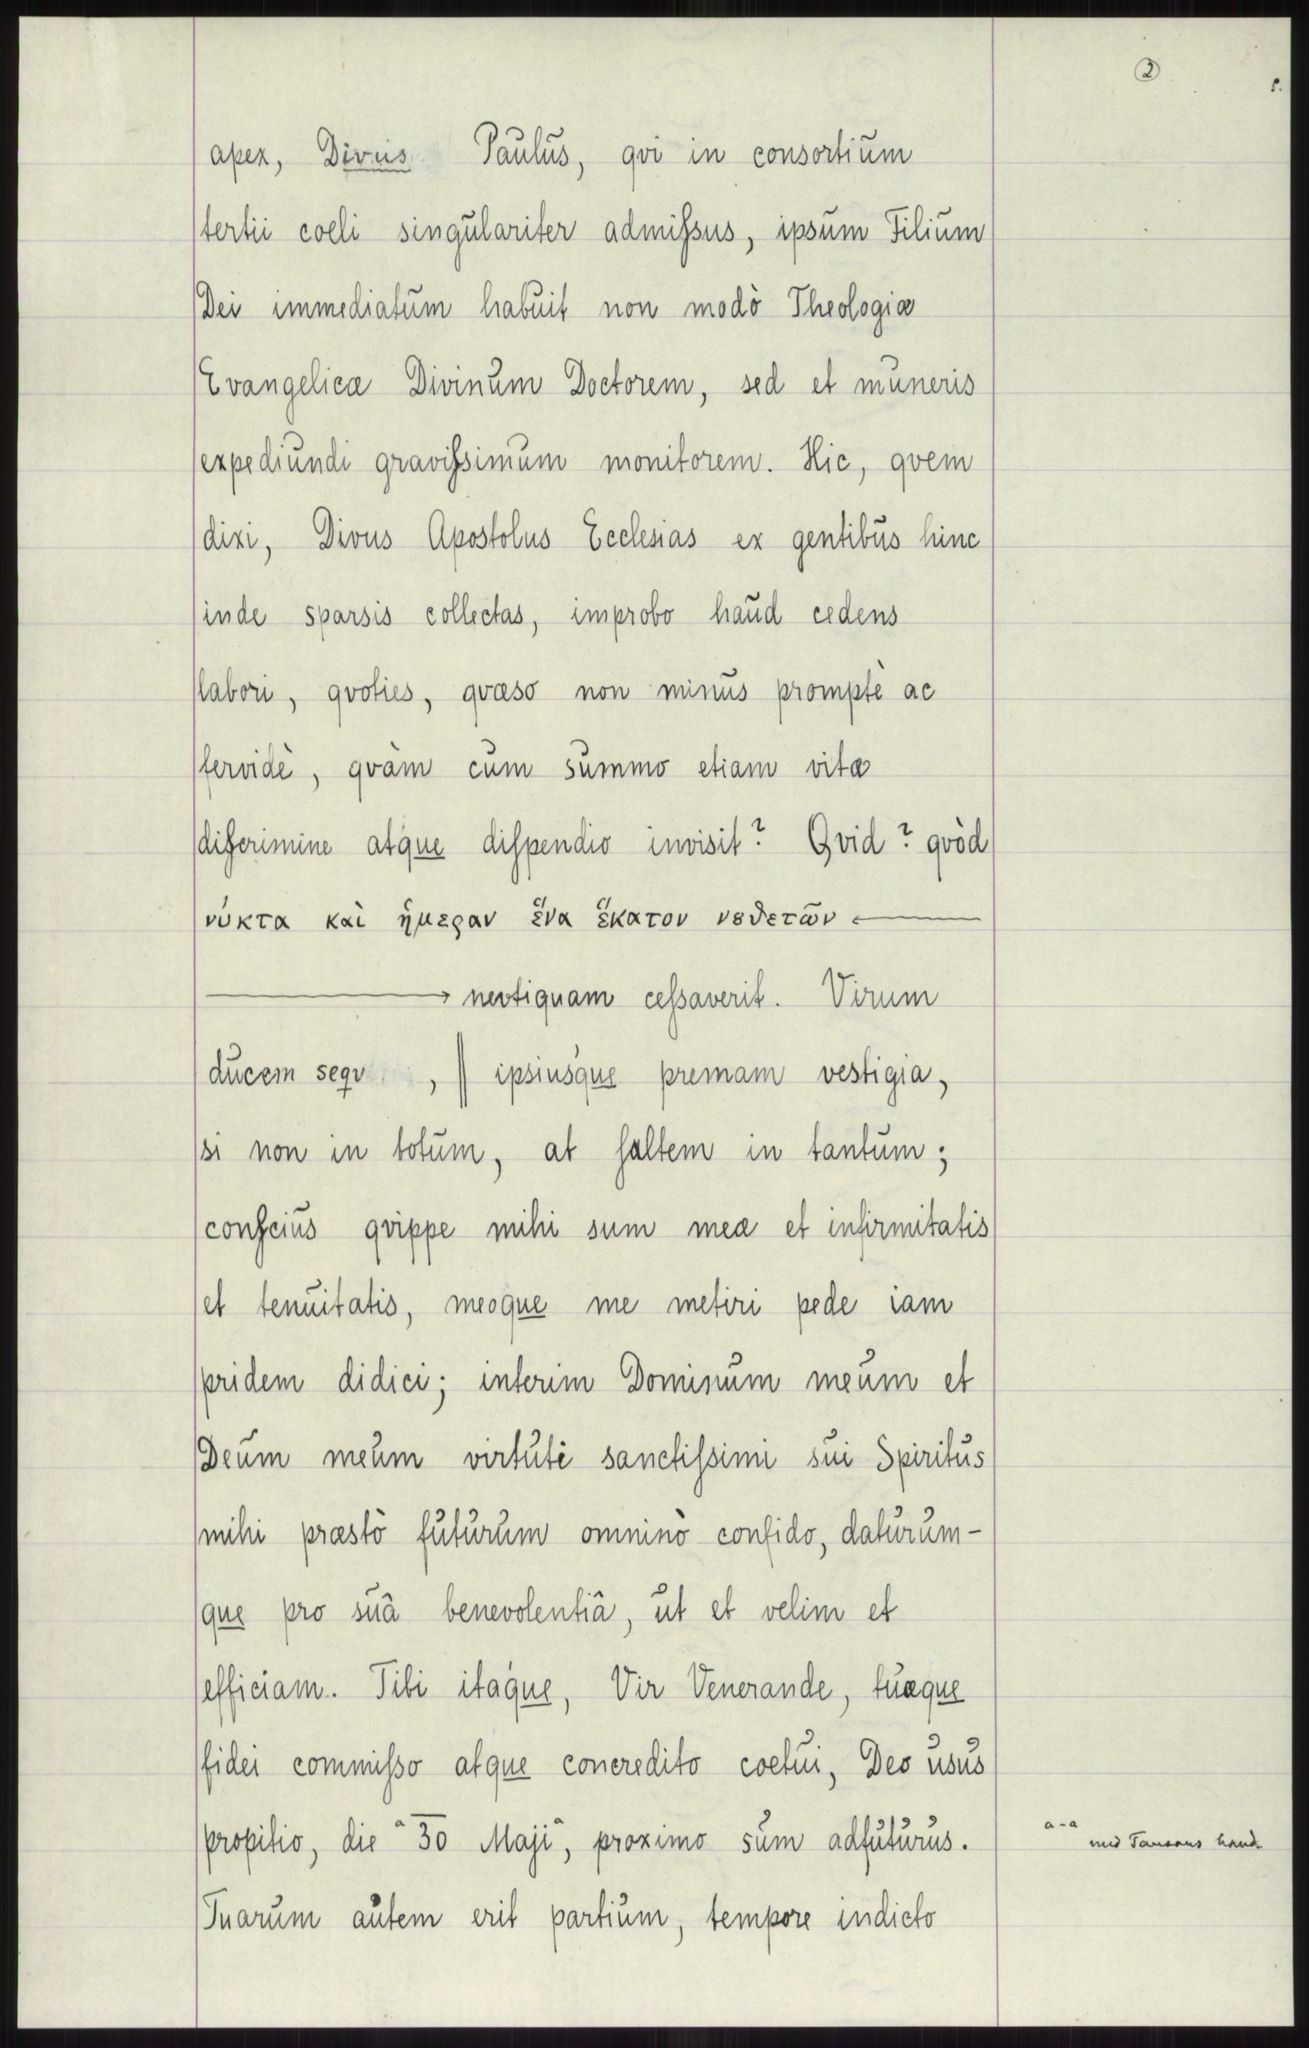 2
apex, Divus Paulus, qvi in consortium
tertii coeli singulariter admiſsus, ipsum Filium
Dei immediatum habuit non modò Theologiæ
Evangelicæ Divinum Doctorem, sed et muneris
expediundi graviſsimum monitorem. Hic, qvem
dixi, Divus Apostolus Ecclesias ex gentibus hinc
inde sparsis collectas, improbo haud cedens
labori, qvoties, qvæso non minus promptè ac
fervidè, qvàm cum summo etiam vitæ
diſcrimine atque diſpendio invisit? Qvid? qvòd
νύκτα καὶ ἥμεραν ἕνα ἕκατον νȣθετῶν
nevtiquam ceſsaverit. Virum
ducem seqv , || ipsiusque premam vestigia,
si non in totum, at ſaltem in tantum;
conſcius qvippe mihi sum meæ et infirmitatis
et tenuitatis, meoque me metiri pede iam
pridem didici; interim Dominum meum et
Deum meum virtute sanctiſsimi sui Spiritus
mihi præstò futurum omninò confido, daturum-
que pro suâ benevolentiâ, ut et velim et
efficiam. Tibi itaque, Vir Venerande, tuæque
fidei commiſso atque concredito coetui, Deo usus
propitio, die a 30 Maji a, proximo sum adfuturus.
a-a med Tausans hånd.
Tuarum autem erit partium, tempore indicto